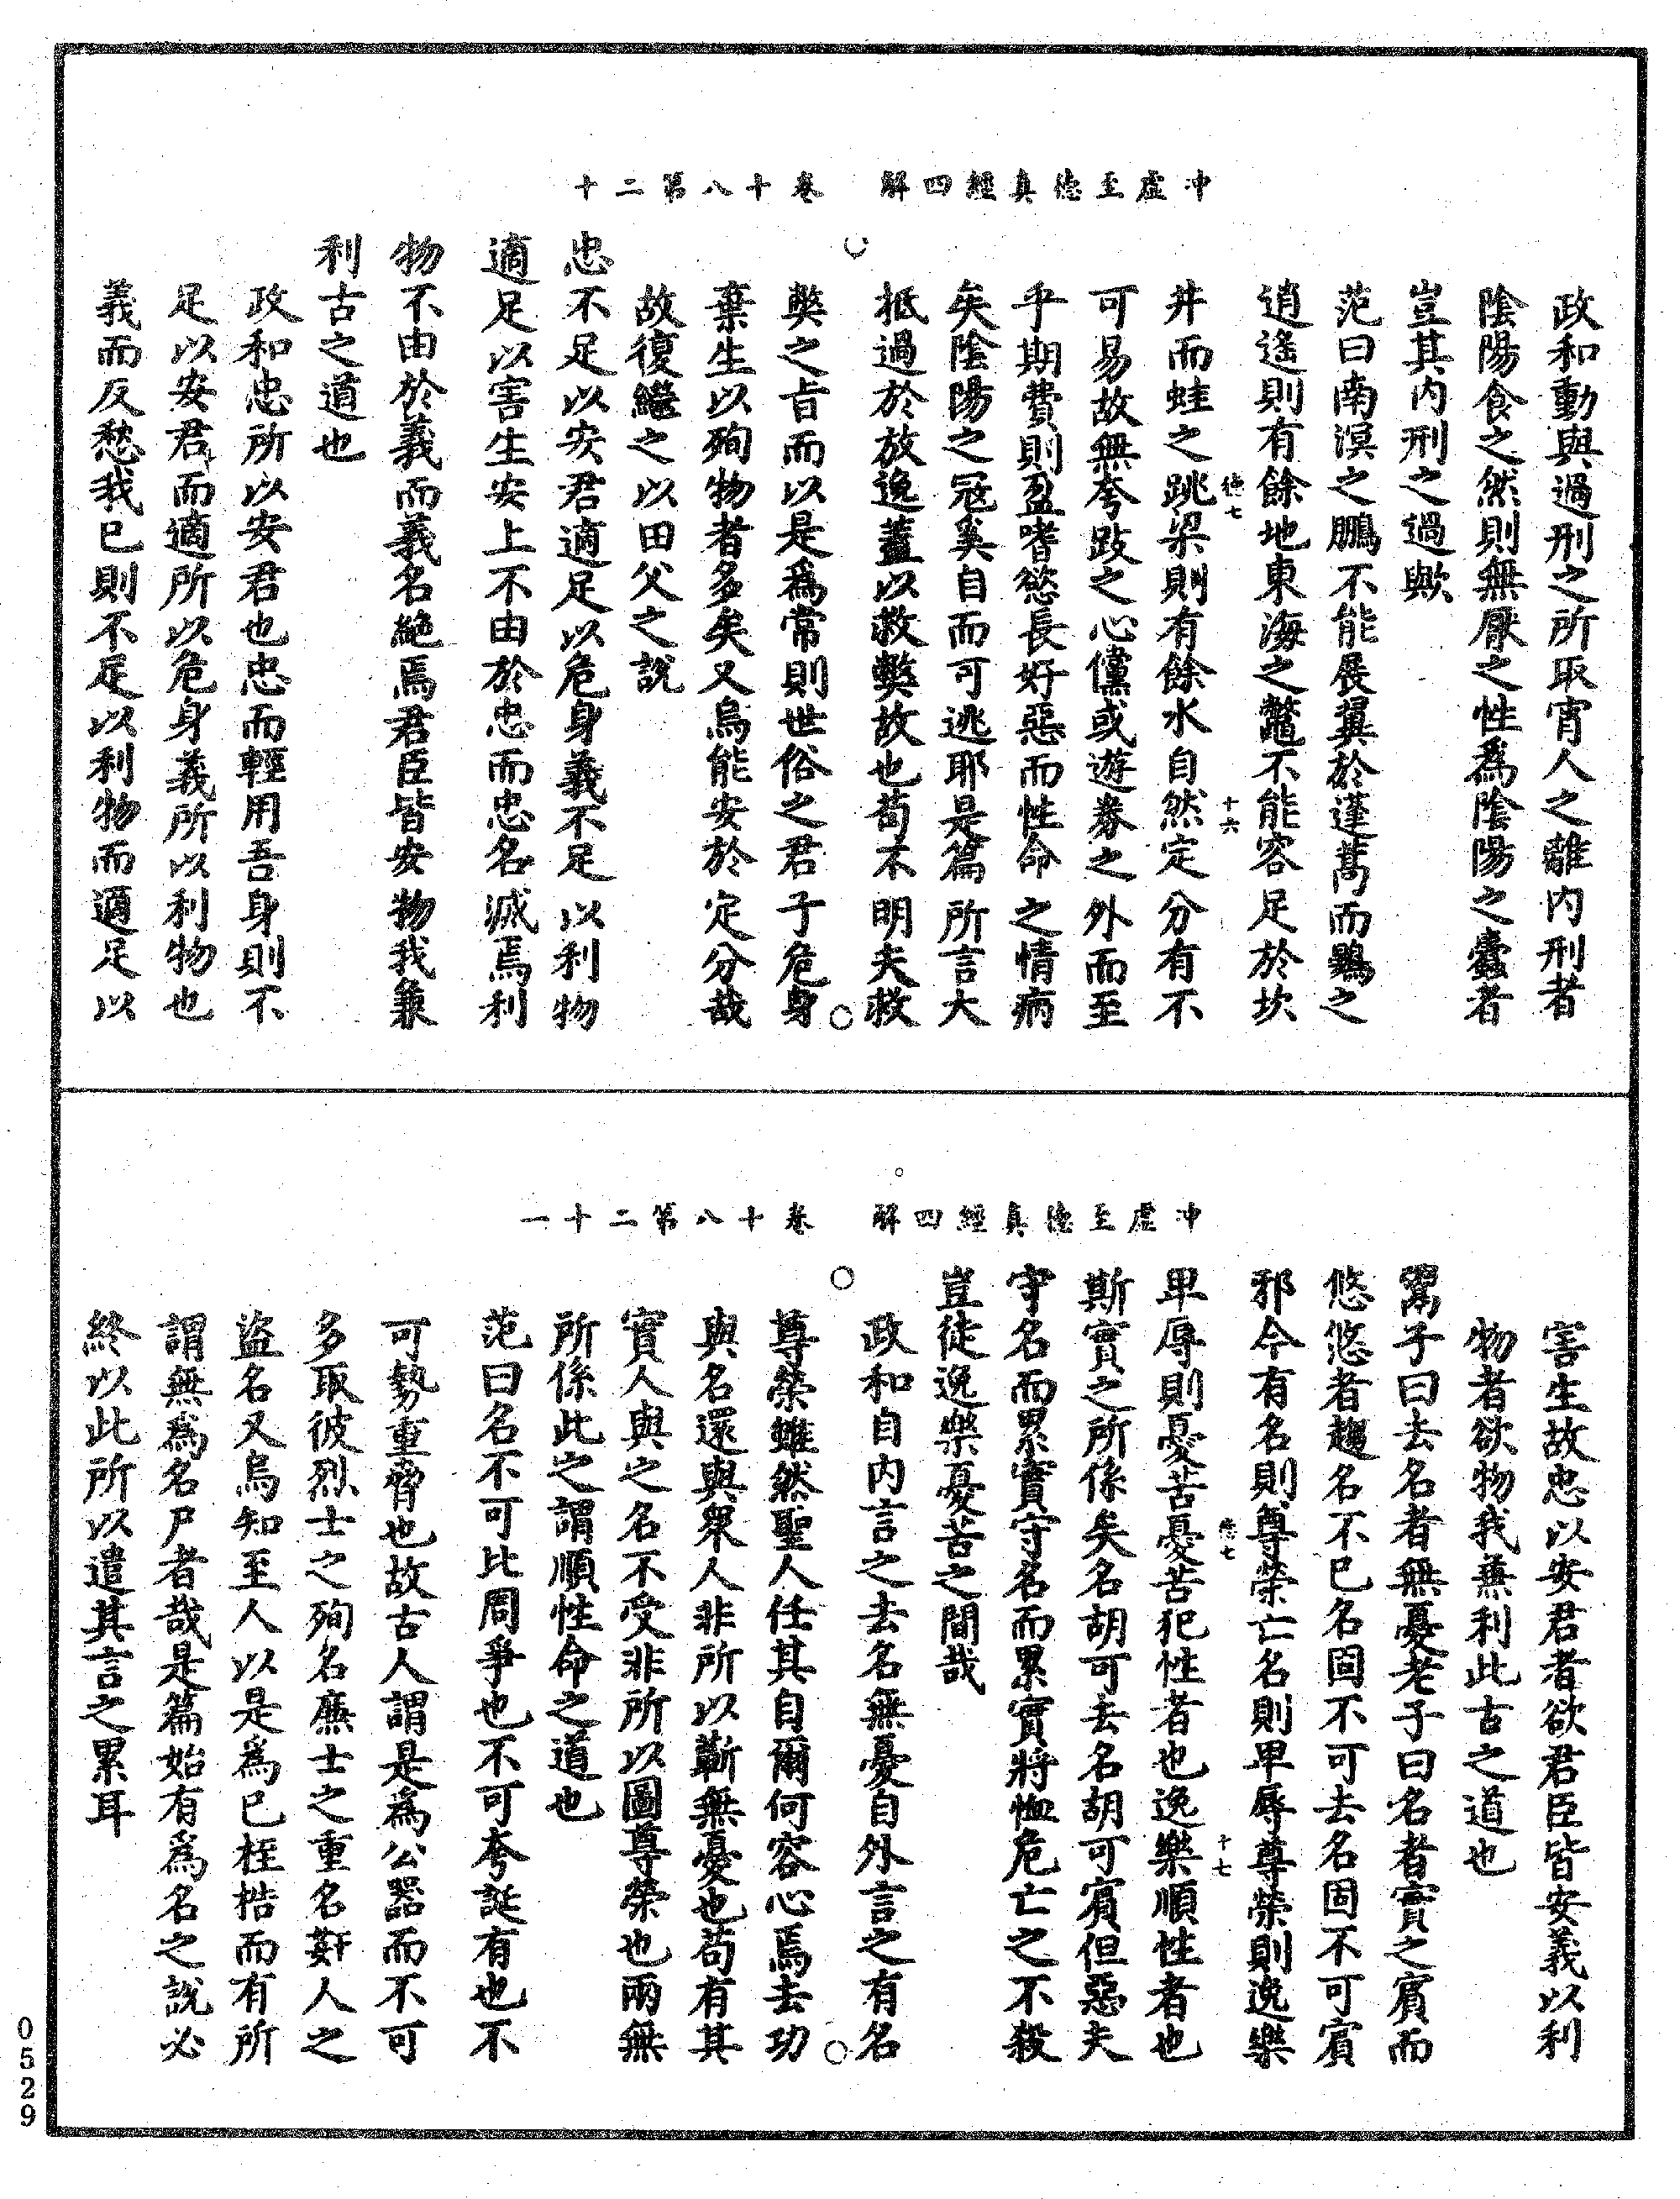 冲虛至德真經四解　卷十八第二十
政和動與過刑之所取宵人之離內刑者
陰陽食之然則無厭之性爲陰陽之蠹者
豈其內刑之過歟
范曰南溟之鵬不能展翼於蓬蒿而鷃之
逍遙則有餘地東海之鼈不能容足於坎
德七　十六
井而蛙之跳梁則有餘水自然定分有不
可易故無夸跂之心儻或遊券之外而至
乎期費則盈嗜慾長好惡而性命之情病
矣陰陽之寇奚自而可逃耶是篇所言大
抵過於放逸蓋以救弊故也苟不明夫救
弊之旨而以是爲常則世俗之君子危身
棄生以殉物者多矣又烏能安於定分哉
故復繼之以田父之說
忠不足以安君適足以危身義不足以利物
適足以害生安上不由於忠而忠名滅焉利
物不由於義而義名絕焉君臣皆安物我兼
利古之道也
政和忠所以安君也忠而輕用吾身則不
足以安君而適所以危身義所以利物也
義而反愁我已則不足以利物而適足以
冲虛至德真經四解　卷十八第二十一
害生故忠以安君者欲君臣皆安義以利
物者欲物我兼利此古之道也
鬻子曰去名者無憂老子曰名者實之賓而
悠悠者趨名不已名固不可去名固不可賓
邪今有名則尊榮亡名則卑辱尊榮則逸樂
德七　十七
卑辱則憂苦憂苦犯性者也逸樂順性者也
斯實之所係矣名胡可去名胡可賓但惡夫
守名而累實守名而累實將恤危亡之不救
豈徒逸樂憂苦之間哉
政和自內言之去名無憂自外言之有名
尊榮雖然聖人任其自爾何容心焉去功
與名還與眾人非所以蘄無憂也苟有其
實人與之名不受非所以圖尊榮也兩無
所係此之謂順性命之道也
范曰名不可比周爭也不可夸誕有也不
可勢重脅也故古人謂是爲公器而不可
多取彼烈士之殉名廉士之重名姦人之
盜名又烏知至人以是爲已桎梏而有所
謂無爲名尸者哉是篇始有爲名之說必
終以此所以遣其言之累耳
0529